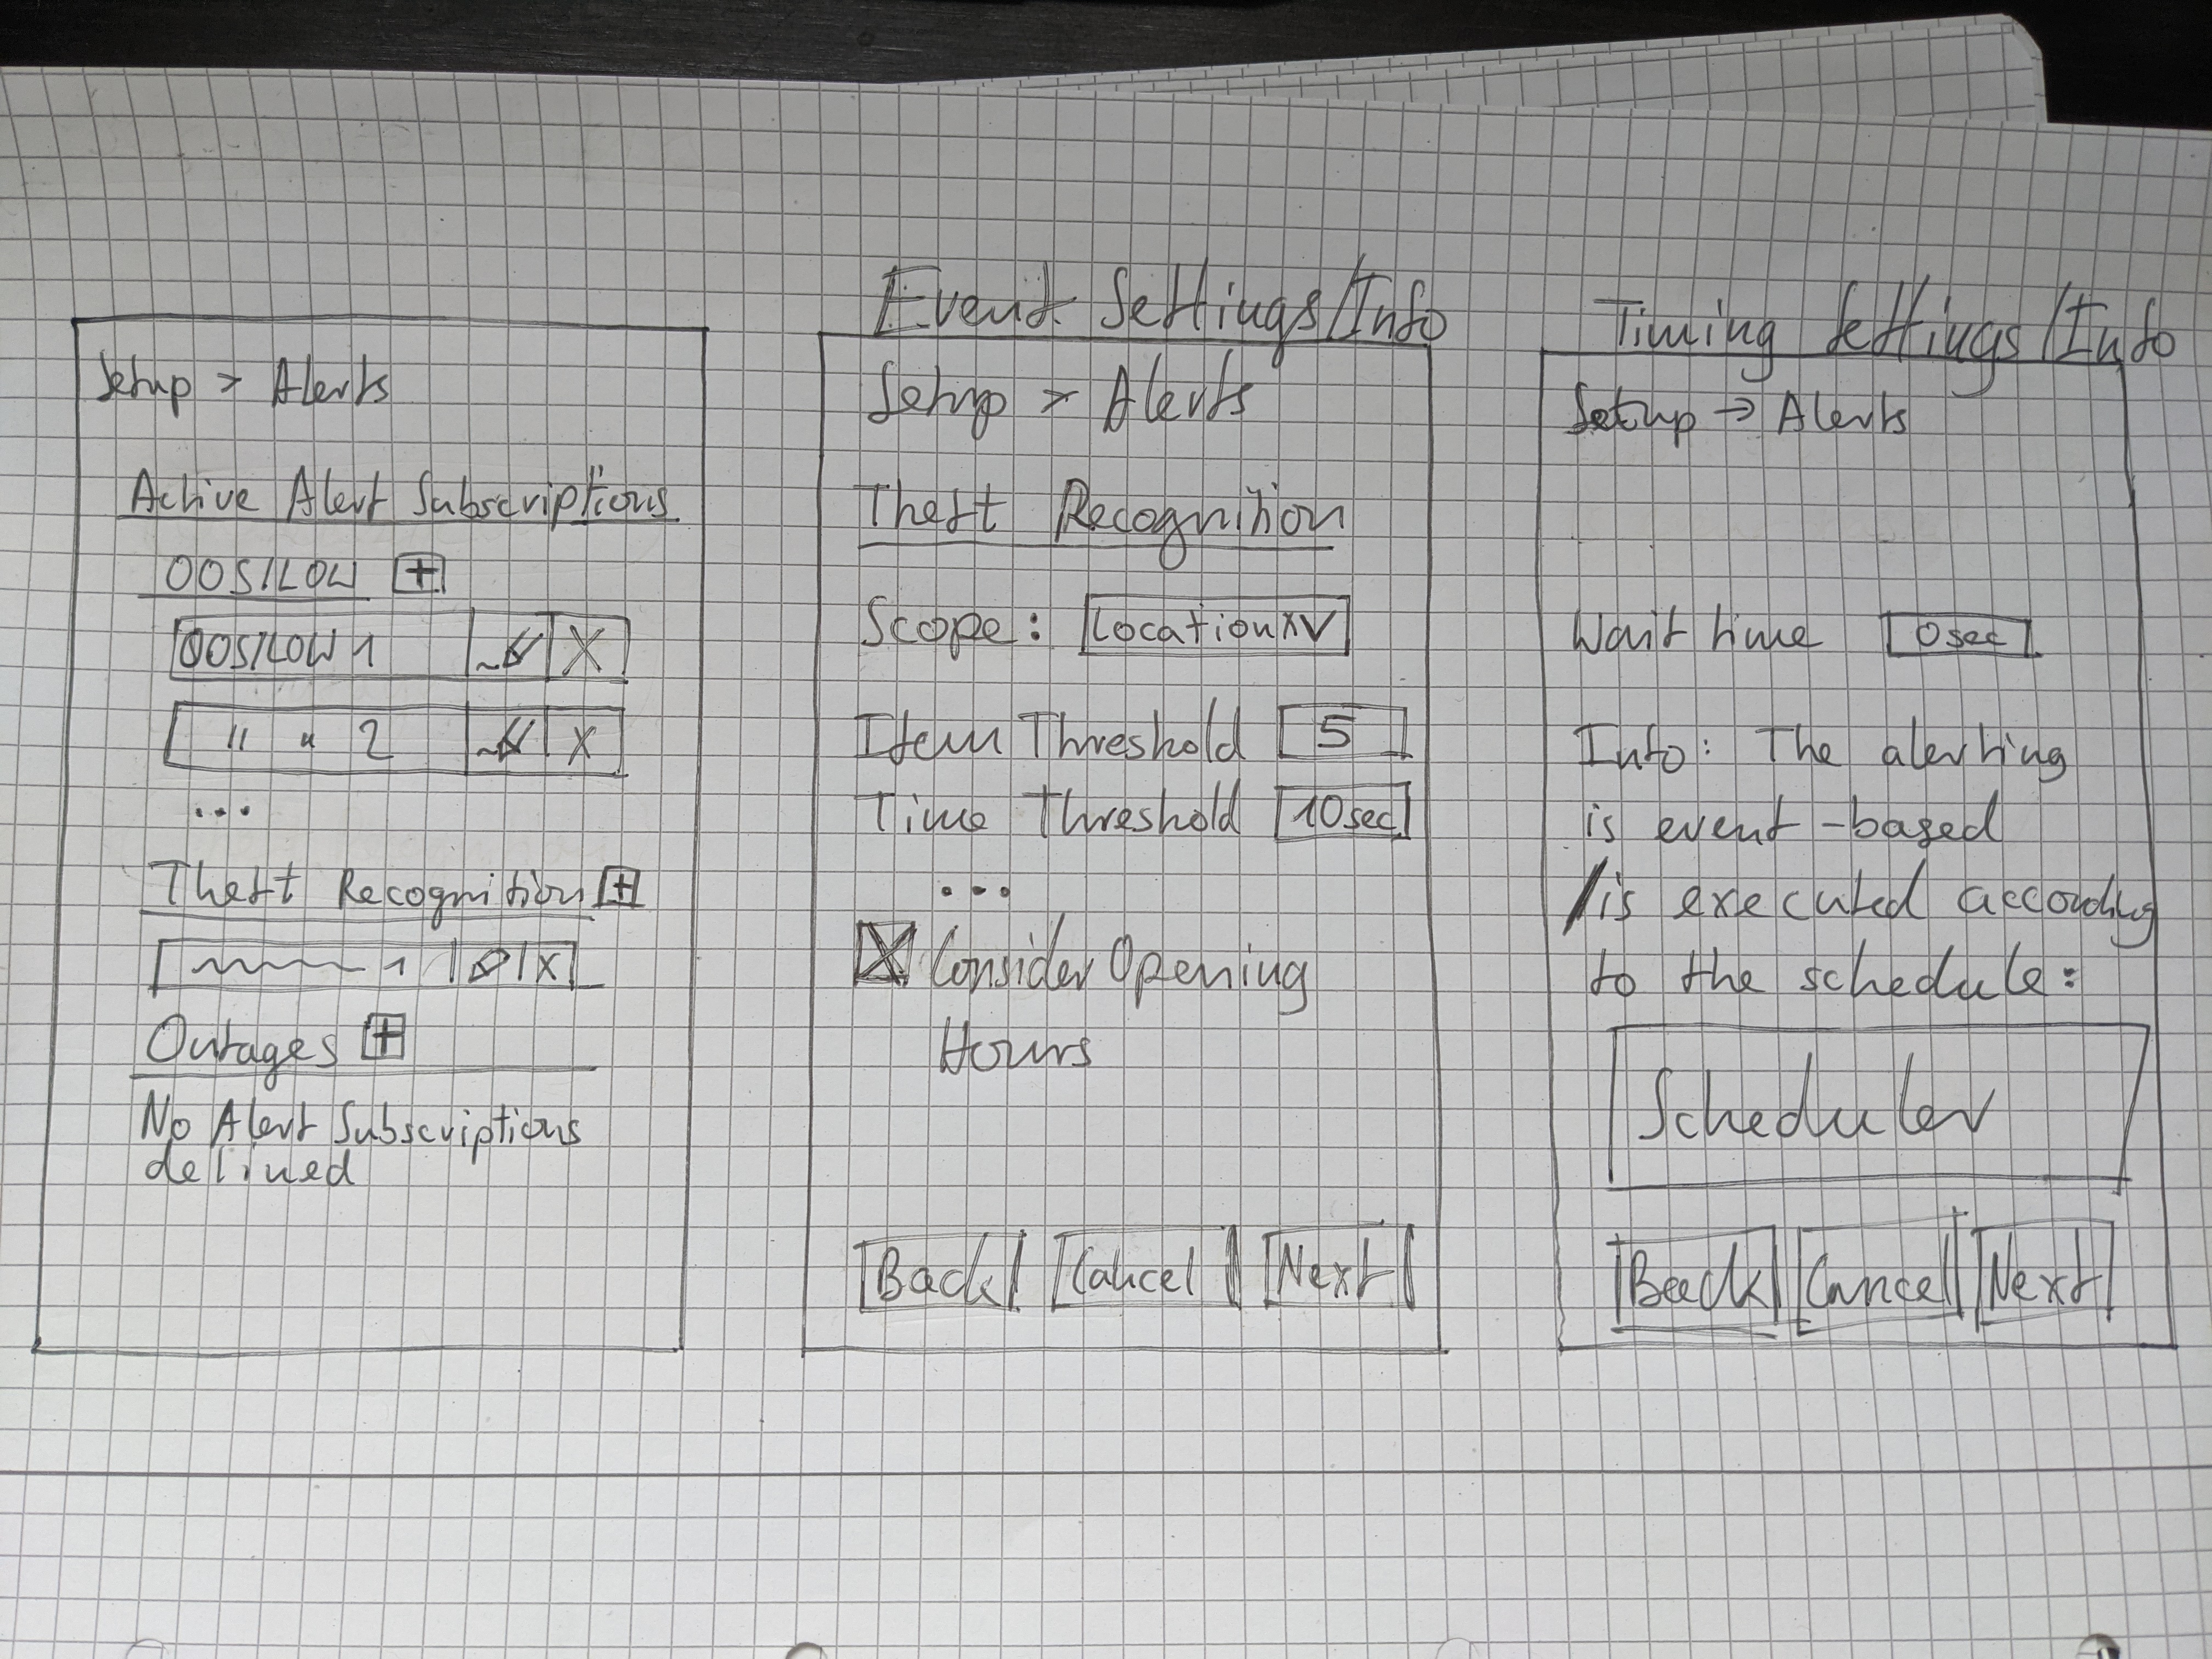 Setup > Alerts
Active Alert Subscriptions
OOS/LOW +
OOS/LOW 1 X
" " 2 X
...
Theft Recognition +
1 X
Outages +
No Alert Subscriptions
defined
Event Settings/Info
Setup > Alerts
Theft Recognition
Scope: Location X V
Item Threshold 5
Time Threshold 10sec
...
X Consider Opening
Hours
Back Cancel Next
Timing Settings/Info
Setup → Alerts
Wait time 0sec
Info: The alerting
is event-based
/is executed according
to the schedule:
Scheduler
Back Cancel Next